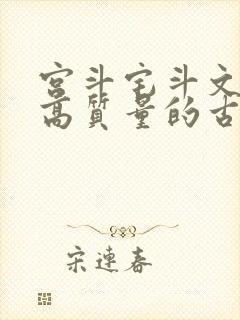 宫斗宅斗文
高质量的古
宋连春